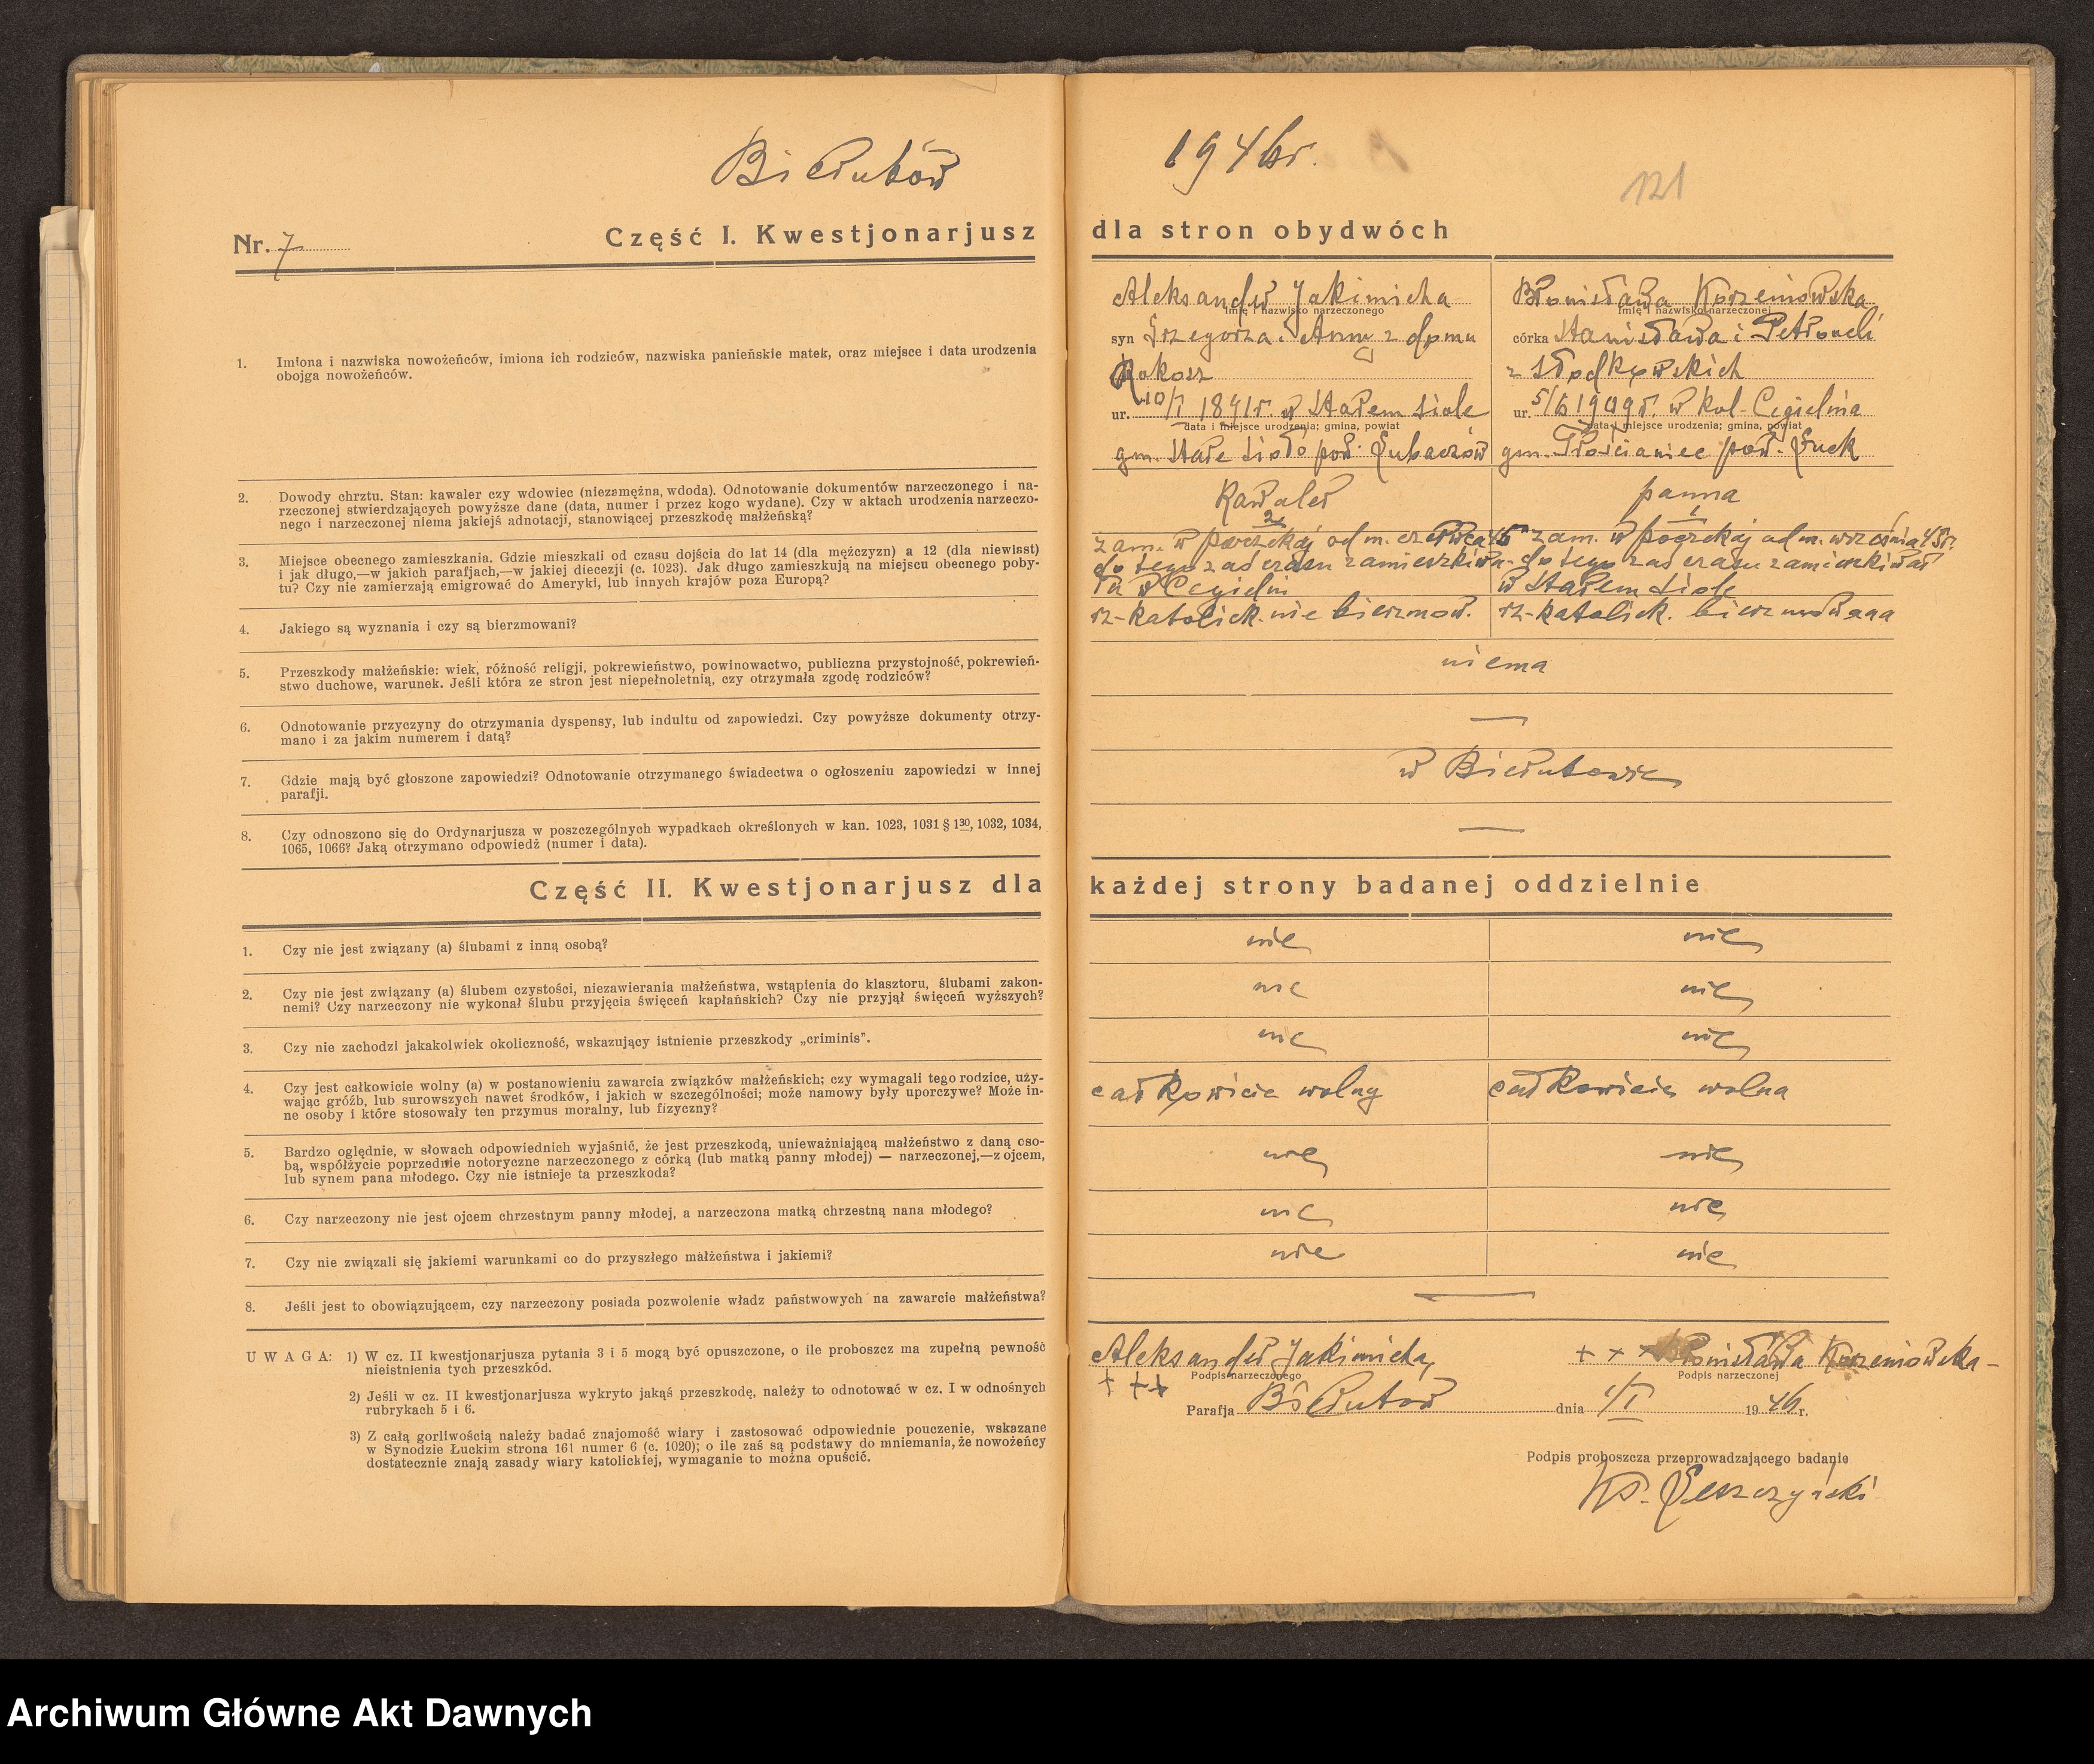 Bierutów
1946 r.
121
Nr. 7
Część I. Kwestjonarjusz dla stron obydwóch
1. Imiona i nazwiska nowożeńców, imiona ich rodziców, nazwiska panieńskie matek, oraz miejsce i data urodzenia
obojga nowożeńców.
Aleksander Jakimicha
imię i nazwisko narzeczonego
syn Grzegorza i Anny z domu
Rokosz
ur. 10/I 1891r. w Starem Siole
data i miejsce urodzenia; gmina, powiat
gm. Stare Sioło pow. Lubaczów
Bronisława Korzeniowska
imię i nazwisko narzeczonej
córka Stanisława i Petroneli
z Słodkowskich
ur. 5/6 1909r. w kol. Cegielnia
data i miejsce urodzenia; gmina, powiat
gm. Trościaniec pow. Łuck
2. Dowody chrztu. Stan: kawaler czy wdowiec (niezamężna, wdoda). Odnotowanie dokumentów narzeczonego i na-
rzeczonej stwierdzających powyższe dane (data, numer i przez kogo wydane). Czy w aktach urodzenia narzeczo-
nego i narzeczonej niema jakiejś adnotacji, stanowiącej przeszkodę małżeńską?
Kawaler
2
panna
1
3. Miejsce obecnego zamieszkania. Gdzie mieszkali od czasu dojścia do lat 14 (dla mężczyzn) a 12 (dla niewiast)
i jak długo,—w jakich parafjach,—w jakiej diecezji (c. 1023). Jak długo zamieszkują na miejscu obecnego poby-
tu? Czy nie zamierzają emigrować do Ameryki, lub innych krajów poza Europą?
zam. w od m. czerwca 45
do tego zaś czasu zamieszkiwa-
ła w Cegielni
zam. w od m. września 45r.
do tego zaś czasu zamieszkiwał
w Starem Siole
4. Jakiego są wyznania i czy są bierzmowani?
rz-katolick. nie bierzmow.
rz-katolick. bierzmowana
5. Przeszkody małżeńskie: wiek, różność religji, pokrewieństwo, powinowactwo, publiczna przystojność, pokrewień-
stwo duchowe, warunek. Jeśli która ze stron jest niepełnoletnią, czy otrzymała zgodę rodziców?
niema
6. Odnotowanie przyczyny do otrzymania dyspensy, lub indultu od zapowiedzi. Czy powyższe dokumenty otrzy-
mano i za jakim numerem i datą?
—
7. Gdzie mają być głoszone zapowiedzi? Odnotowanie otrzymanego świadectwa o ogłoszeniu zapowiedzi w innej
parafji.
w Bierutowie
8. Czy odnoszono się do Ordynarjusza w poszczególnych wypadkach określonych w kan. 1023, 1031 § 1 30, 1032, 1034,
1065, 1066? Jaką otrzymano odpowiedź (numer i data).
—
Część II. Kwestjonarjusz dla każdej strony badanej oddzielnie
1. Czy nie jest związany (a) ślubami z inną osobą?
nie nie
2. Czy nie jest związany (a) ślubem czystości, niezawierania małżeństwa, wstąpienia do klasztoru, ślubami zakon-
nemi? Czy narzeczony nie wykonał ślubu przyjęcia święceń kapłańskich? Czy nie przyjął święceń wyższych?
nie nie
3. Czy nie zachodzi jakakolwiek okoliczność, wskazujący istnienie przeszkody „criminis".
nie nie
4. Czy jest całkowicie wolny (a) w postanowieniu zawarcia związków małżeńskich; czy wymagali tego rodzice, uży-
wając gróźb, lub surowszych nawet środków, i jakich w szczególności; może namowy były uporczywe? Może in-
ne osoby i które stosowały ten przymus moralny, lub fizyczny?
całkowicie wolny całkowicie wolna
5. Bardzo oględnie, w słowach odpowiednich wyjaśnić, że jest przeszkodą, unieważniającą małżeństwo z daną oso-
bą, współżycie poprzednie notoryczne narzeczonego z córką (lub matką panny młodej) — narzeczonej,—z ojcem,
lub synem pana młodego. Czy nie istnieje ta przeszkoda?
nie nie
6. Czy narzeczony nie jest ojcem chrzestnym panny młodej, a narzeczona matką chrzestną nana młodego?
nie nie
7. Czy nie związali się jakiemi warunkami co do przyszłego małżeństwa i jakiemi?
nie nie
8. Jeśli jest to obowiązującem, czy narzeczony posiada pozwolenie władz państwowych na zawarcie małżeństwa?
—
UWAGA: 1) W cz. II kwestjonarjusza pytania 3 i 5 mogą być opuszczone, o ile proboszcz ma zupełną pewność
nieistnienia tych przeszkód.
2) Jeśli w cz. II kwestjonarjusza wykryto jakąś przeszkodę, należy to odnotować w cz. I w odnośnych
rubrykach 5 i 6.
3) Z całą gorliwością należy badać znajomość wiary i zastosować odpowiednie pouczenie, wskazane
w Synodzie Łuckim strona 161 numer 6 (c. 1020); o ile zaś są podstawy do mniemania, że nowożeńcy
dostatecznie znają zasady wiary katolickiej, wymaganie to można opuścić.
Aleksander Jakimicha
Podpis narzeczonego
+ + +
+ + + Bronisława Korzeniowska
Podpis narzeczonej
Parafja Bierutów dnia 1/I 1946 r.
Podpis proboszcza przeprowadzającego badanie
Ks. Leszczyński
Archiwum Główne Akt Dawnych